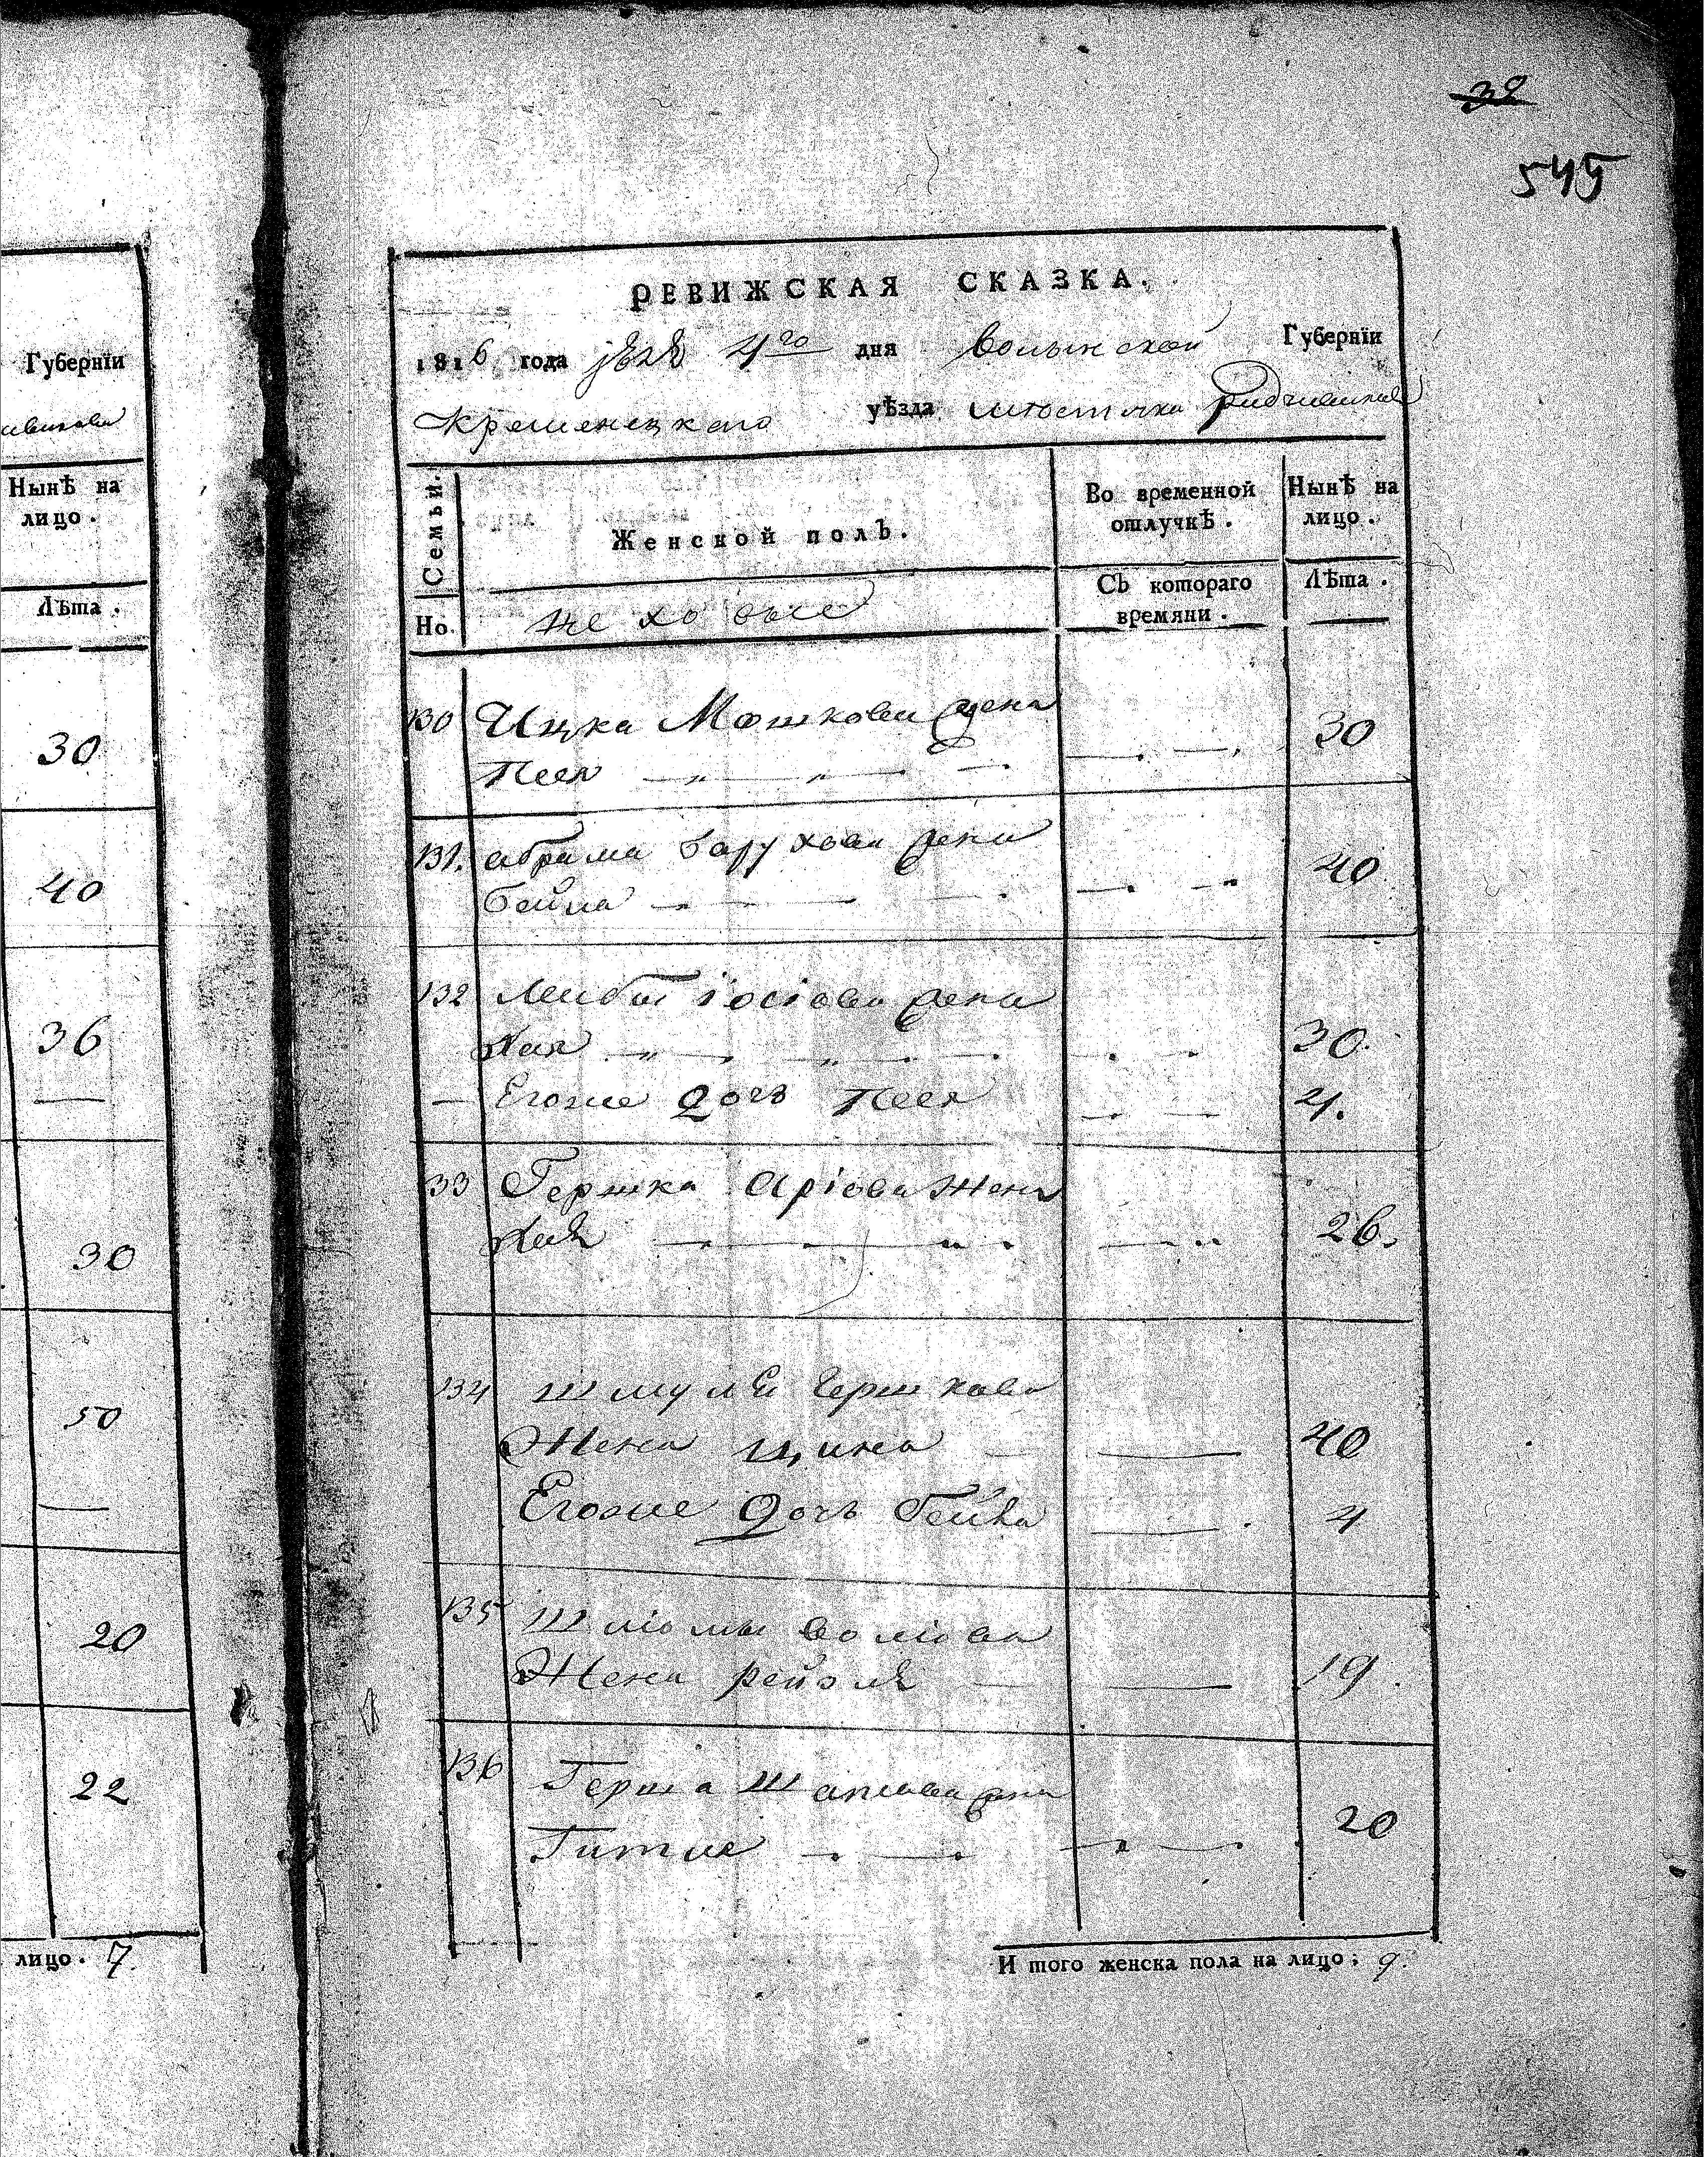 32
545
Губернїи
Нынѣ на
лицо.
Лѣта.
30
40
36
30
50
20
22
лицо. 7.
РЕВИЖСКАЯ СКАЗКА.
1816 года 4го дня Волынской Губернїи
Кременецкаго уѣзда местечка
Семьи.
Женской полЪ.
Во временной
отлучкѣ.
Нынѣ на
лицо.
Но.
СЪ котораго
времяни.
Лѣта.
130 Ицка Мошкова жена
Песя 30
131. абрама барухова жена
бейла 40
132 Лейбы іосіова жена
Хая 30.
Егоже дочъ Песя 4.
33 Гершка Аріова жена
Хая 26.
134 шмуля гершкова
Жена ципа 40
Егоже дочъ 4
135 Шліомы воліова
Жена рейзля 19.
136 Герша жена
Гитля 20
И того женска пола на лицо; 9.